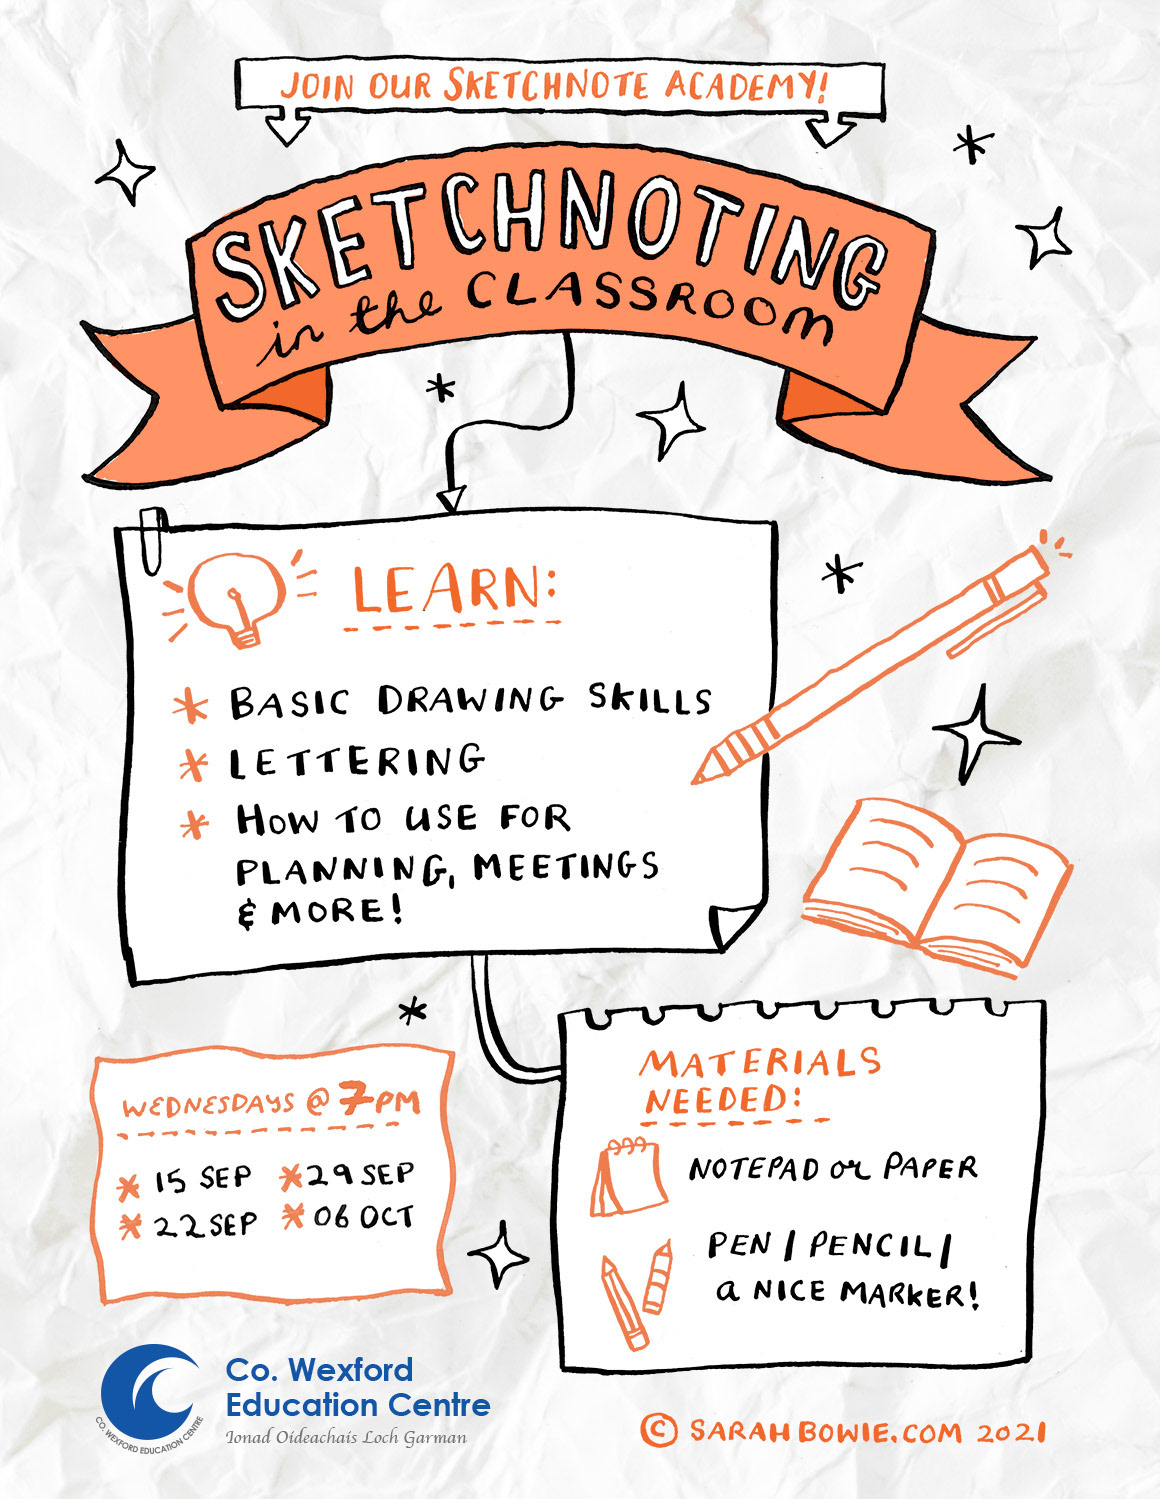 JOIN OUR SKETCHNOTE ACADEMY!
SKETCHNOTING
in the CLASSROOM
LEARN:
* BASIC DRAWING SKILLS
* LETTERING
* HOW TO USE FOR
PLANNING, MEETINGS
& MORE!
WEDNESDAYS @ 7PM
* 15 SEP * 29 SEP
* 22 SEP * 06 OCT
MATERIALS
NEEDED:
NOTEPAD or PAPER
PEN / PENCIL /
a NICE MARKER!
CO. WEXFORD EDUCATION CENTRE
Co. Wexford
Education Centre
Ionad Oideachais Loch Garman
© SARAHBOWIE.COM 2021